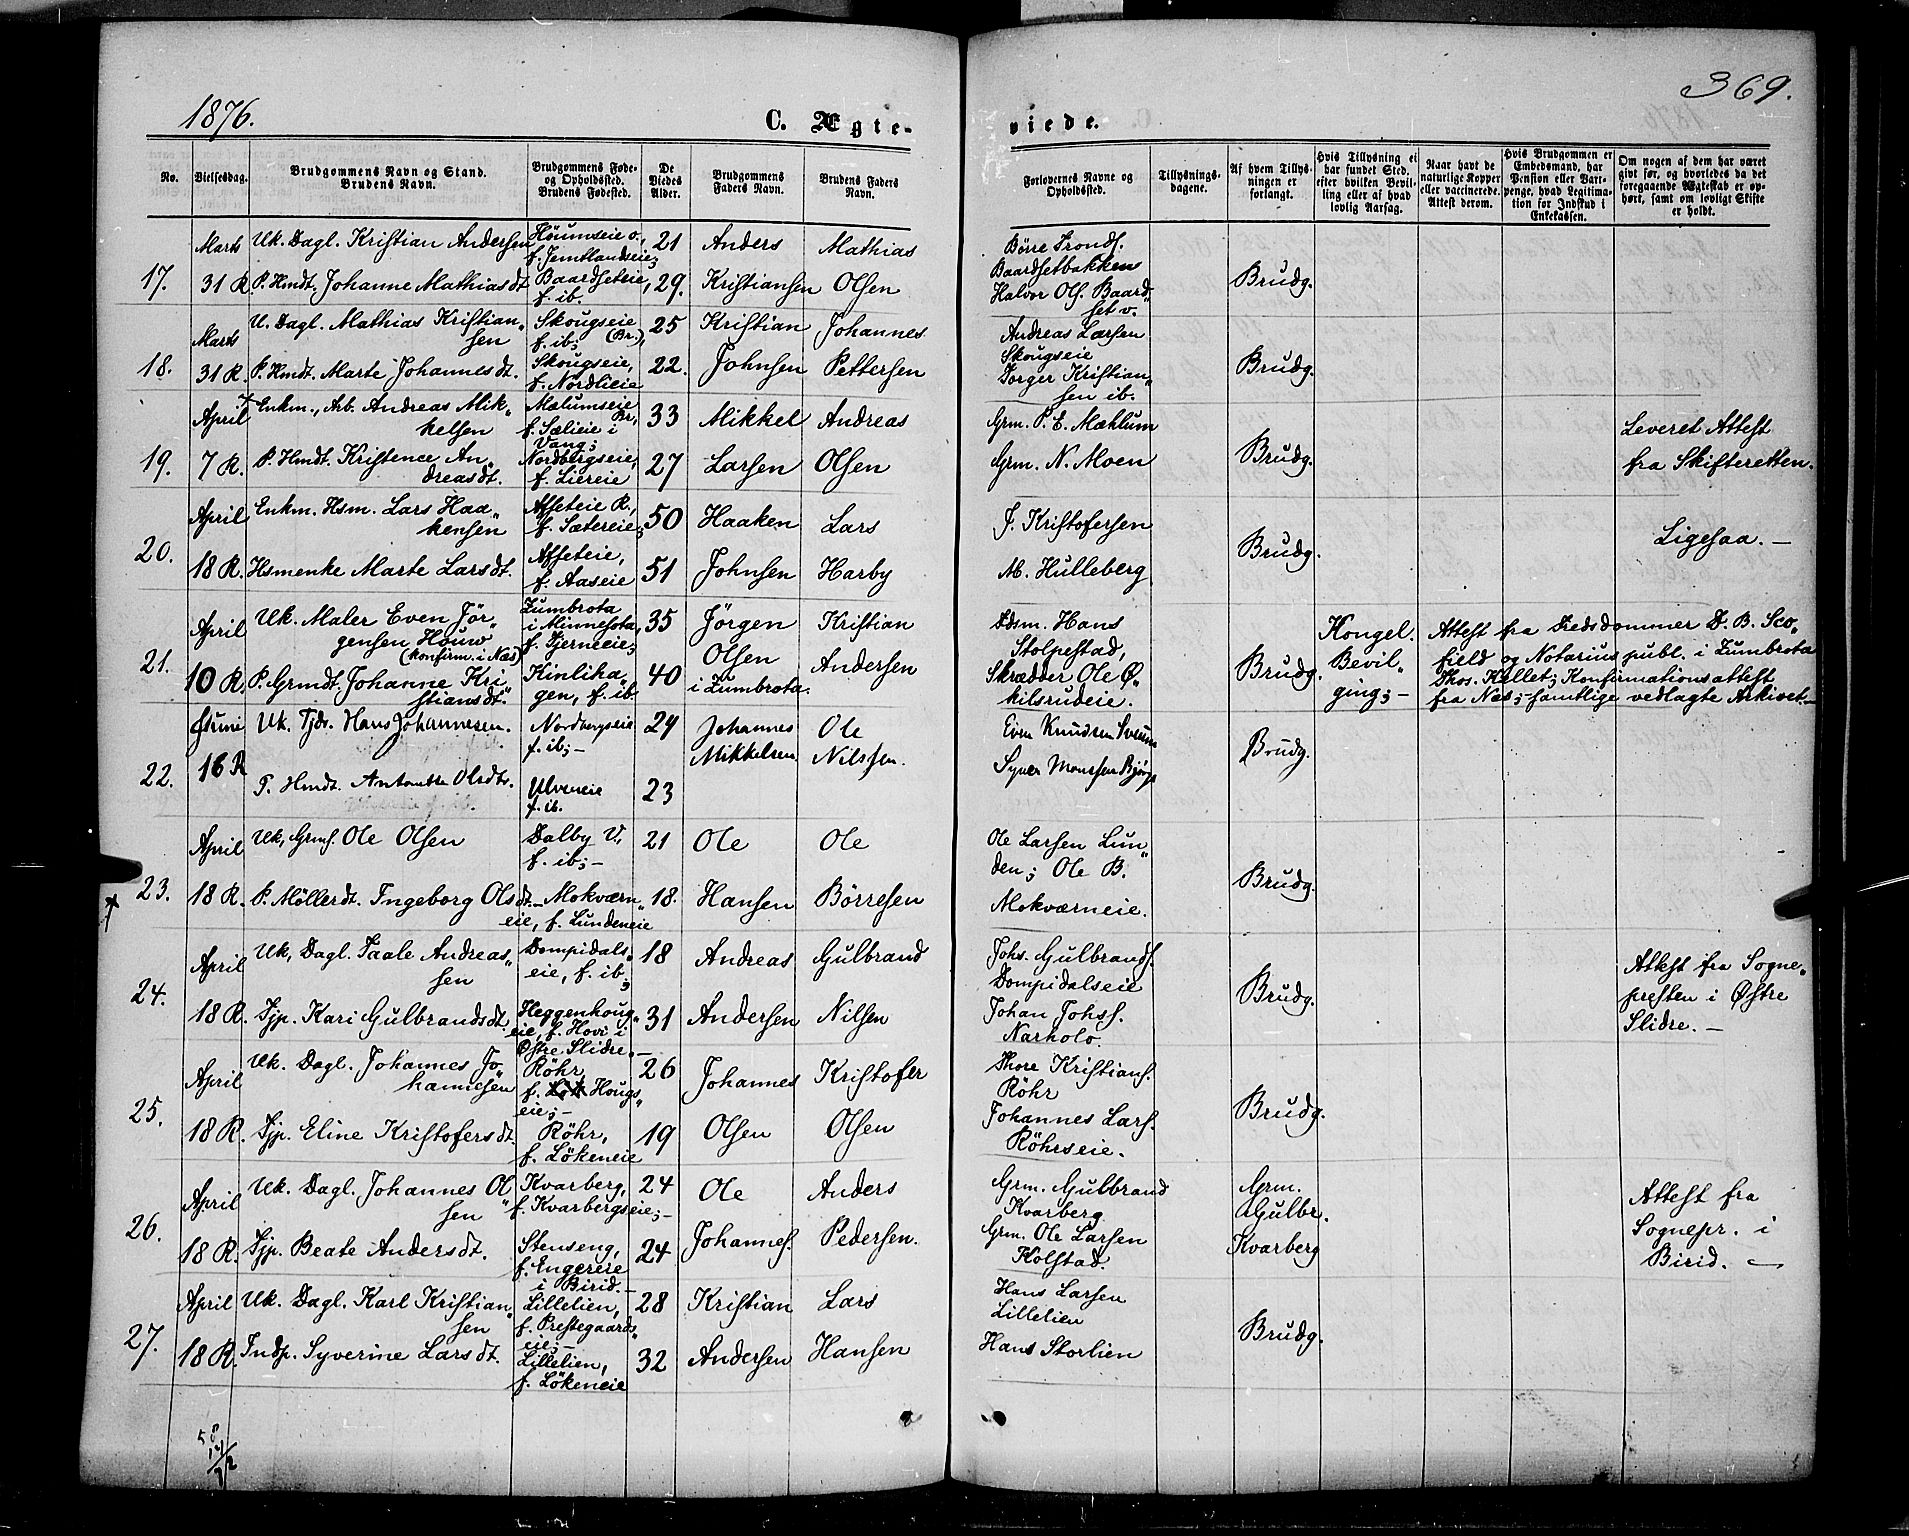 1876.
C. Ægte-
viede.
369.
No.
Vielsesdag.
Brudgommens Navn og Stand.
Brudens Navn.
Brudgommens Føde-
og Opholdssted.
Brudens Fødested.
De
Viedes
Alder.
Brudgommens
Faders Navn.
Brudens Faders
Navn.
Forlovernes Navne og
Opholdssted.
Tillysnings-
dagene.
Af hvem Tillys-
ningen er
forlangt.
Hvis Tillysning ei
har fundet Sted,
efter hvilken Bevil-
ling eller af hvad
lovlig Aarsag.
Naar havt de
naturlige Kopper
eller vaccinerede.
Attest derom.
Hvis Brudgommen er
Embedsmand, har
Pension eller Vart-
penge, hvad Legitima-
tion for Indskud i
Enkekassen.
Om nogen af dem har været
gift før, og hvorledes da det
foregaaende Ægteskab er op-
hørt, samt om lovligt Skifte
er holdt.
17.
Marts
31 R.
Uk. Dagl. Kristian Andersen
P. Hmdt. Johanne Mathiasdt
Höiumseie o.,
f. Jemtlandseie;
Baardseteie,
f. ib.
21
29.
Anders
Kristiansen
Mathias
Olsen
Börre Tronds.
Baardsetbakken
Halvor Ols. Baard„
set v.
Brudg.
18.
Marts
31 R.
U. Dagl. Mathias Kristian„
sen
P. Hmdt. Marte Johannesdt.
Skougseie
f. ib; (Br.),
Skougseie,
f. Nordlieie
25
22.
Kristian
Johnsen
Johannes
Pettersen
Andreas Larsen
Skougseie
Torger Kristian„
sen ib.
Brudg.
19.
April
7 R.
Enkm., Arb. Andreas Mik„
kelsen
P. Hmdt. Kristence An„
dreasdt.
Mælumseie
Br,
f. Sælieie i
Vang;
Nordbergseie,
f. Liereie
33
27
Mikkel
Larsen
Andreas
Olsen
Grm. P. E. Mæhlum
Grm. N. Moen
Brudg.
Leveret Attest
fra Skifteretten.
20.
April
18 R.
Enkm. Hsm. Lars Haa„
kensen
Hsmenke Marte Larsdt.
Asseteie R.,
f. Sætereie;
Asseteie,
f. Aaseie
50
51
Haaken
Johnsen
Lars
Harby
J. Kristofersen
M. Hulleberg
Brudg.
Ligesaa. —
21.
April
10 R.
Uk. Maler Even Jör„
gensen Houw
(konfirm. i Næs)
P. Grmdt. Johanne Kri„
stiansdt.
Zumbrota
i Minnesota,
f. Tjerneeie;
Kinlika„
gen, f. ib.
35
40
Jörgen
Olsen
i Zumbrota.
Kristian
Andersen
Ddsm. Hans
Stolpestad,
Skrædder Ole Ø„
kilsrudeie.
Brudg.
Kongel.
Bevil„
ging; —
Attest fra Fredsdommer D. B. Sco„
field og Notarius publ. i Zumbrota
Thos. Kellet; Konfirmationsattest
fra Næs; samtlige vedlagte Arkivet.—
22.
Juni
16 R
Uk. Tjdr. Hans Johannesen.
P. Hmdt. Antonette Olsdtr.
Nordbergseie
f. ib; —
Ulveneie
f. ib.
24
23
Johannes
Mikkelsen
Ole
Nilssen.
Even Knudsen Sveum
Syver Monssen Bjørge
Brudg.
23.
April
18 R.
Uk, Grms. Ole Olsen
P. Möllerdt. Ingeborg Olsdt.
Dalby V.,
f. ib; —
Mokværn„
eie, f. Lundeneie
21
18.
Ole
Hansen
Ole
Börresen
Ole Larsen Lun„
den; Ole B.
Mokværneie.
Brudg.
24.
April
18 R.
Uk, Dagl. Paale Andreas„
sen
Pjp. Kari Gulbrandsdt.
Dompidals„
eie, f. ib;
Heggenhoug„
eie, f. Hovi i
Østre Slidre. —
18
31
Andreas
Andersen
Gulbrand
Nilsen
Johs. Gulbrands.
Dompidalseie
Johan Johs.
Narholo.
Brudg.
Attest fra Sogne„
presten i Østre
Slidre. —
25.
April
18 R.
Uk. Dagl. Johannes Jo„
hannesen
Pjp. Eline Kristofersdt.
Röhr,
f. Hougs„
eie; —
Röhr,
f. Lökeneie
26
19
Johannes
Olsen
Kristofer
Olsen
Thore Kristians.
Röhr
Johannes Lars.
Röhrseie.
Brudg.
26.
April
18 R.
Uk. Dagl. Johannes Ol„
sen
Pjp. Beate Andersdt.
Kvarberg,
f. Kvarbergseie; —
Stenseng,
f. Engereie
i Birid. —
24
24
Ole
Johannes.
Anders
Pedersen.
Grm. Gulbrand
Kvarberg
Grm. Ole Larsen
Kolstad.
Grm.
Gulbr.
Kvarberg
Attest fra
Sognepr. i
Birid. —
27.
April
18 R.
Uk. Dagl. Karl Kristian„
sen
Indp. Syverine Larsdt.
Lillelien,
f. Prestegaards„
eie; —
Lillelien,
f. Lökeneie
28
32
Kristian
Andersen
Lars
Hansen
Hans Larsen
Lillelien
Hans Storlien
Brudg.